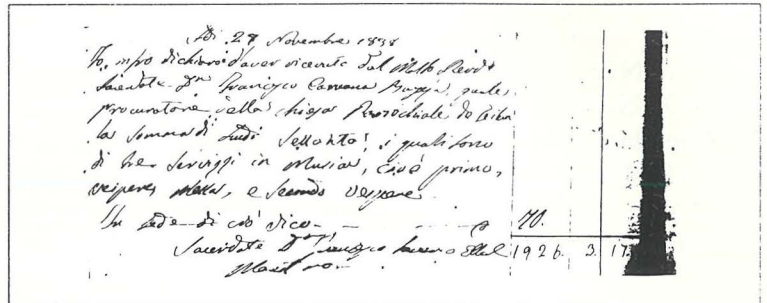 Di 27 Novembre 1838
Io, infro dichiaro d'aver ricevuto dal Molto Revdo
Sacerdote Dn Francesco Caruana quale
procuratore della chiesa Parrochiale
la somma di Scudi Sessanta, i quali sono
di tre serviggi in Musica, cioè primo,
vespere, Messa, e Secondo Vespere
In fede di ciò dico
70.
Sacerdote Dn Francesco
1926. 3. 17.